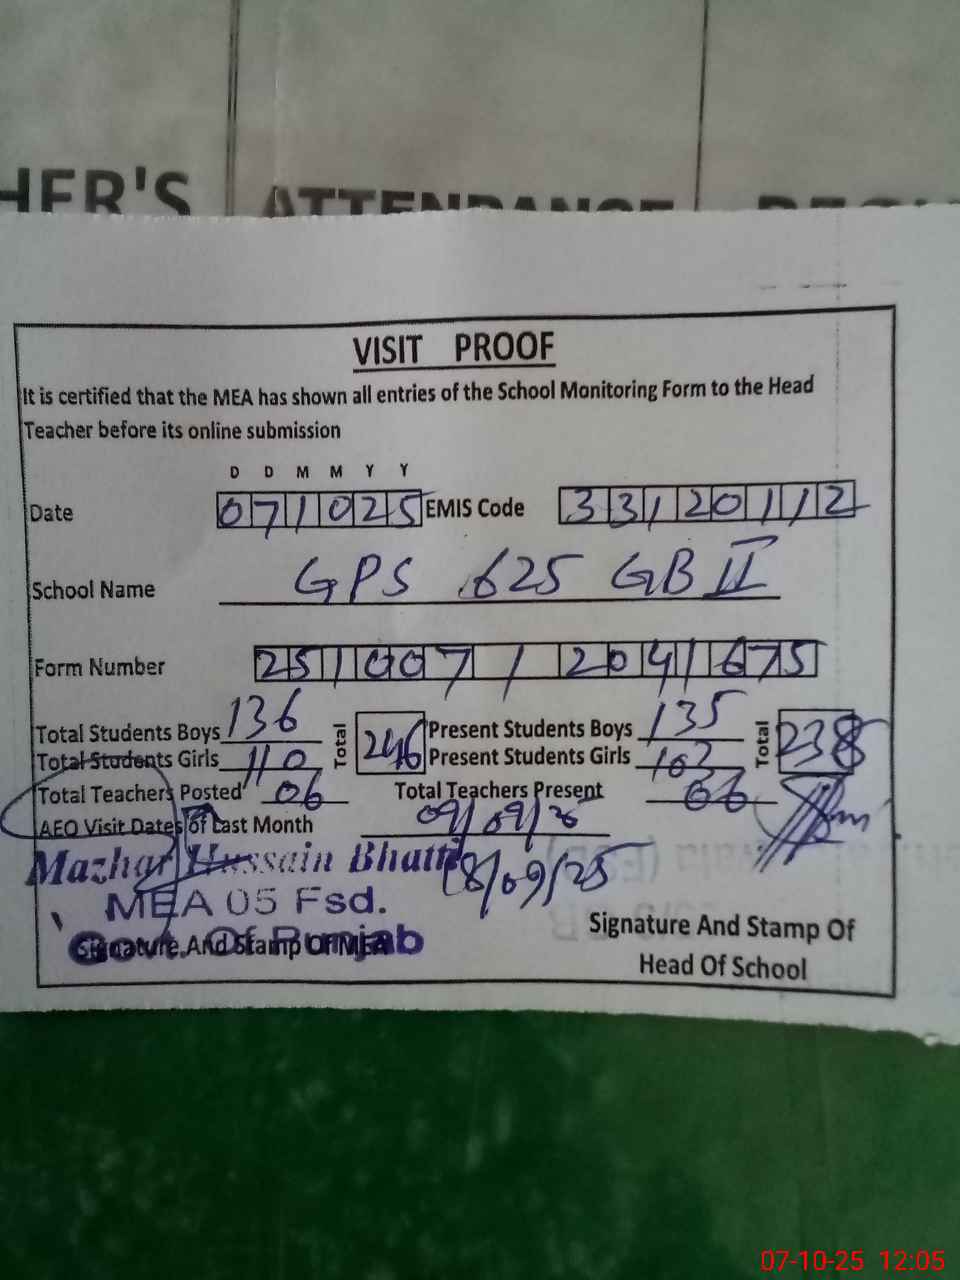 HER'S ATTENDANCE
VISIT PROOF
It is certified that the MEA has shown all entries of the School Monitoring Form to the Head
Teacher before its online submission
D D M M Y Y
Date 071025 EMIS Code 33120112
School Name GPS 625 GB II
Form Number 251007/2041675
Total Students Boys 136 Total 246 Present Students Boys 135 Total 238
Total Students Girls 110 Present Students Girls 103
Total Teachers Posted 06 Total Teachers Present 06
AEO Visit Dates of Last Month 09/09/25
18/09/25
Mazhar Hussain Bhatti
MEA 05 Fsd.
Govt. Of Punjab
Signature And Stamp Of MEA
Signature And Stamp Of
Head Of School
07-10-25 12:05